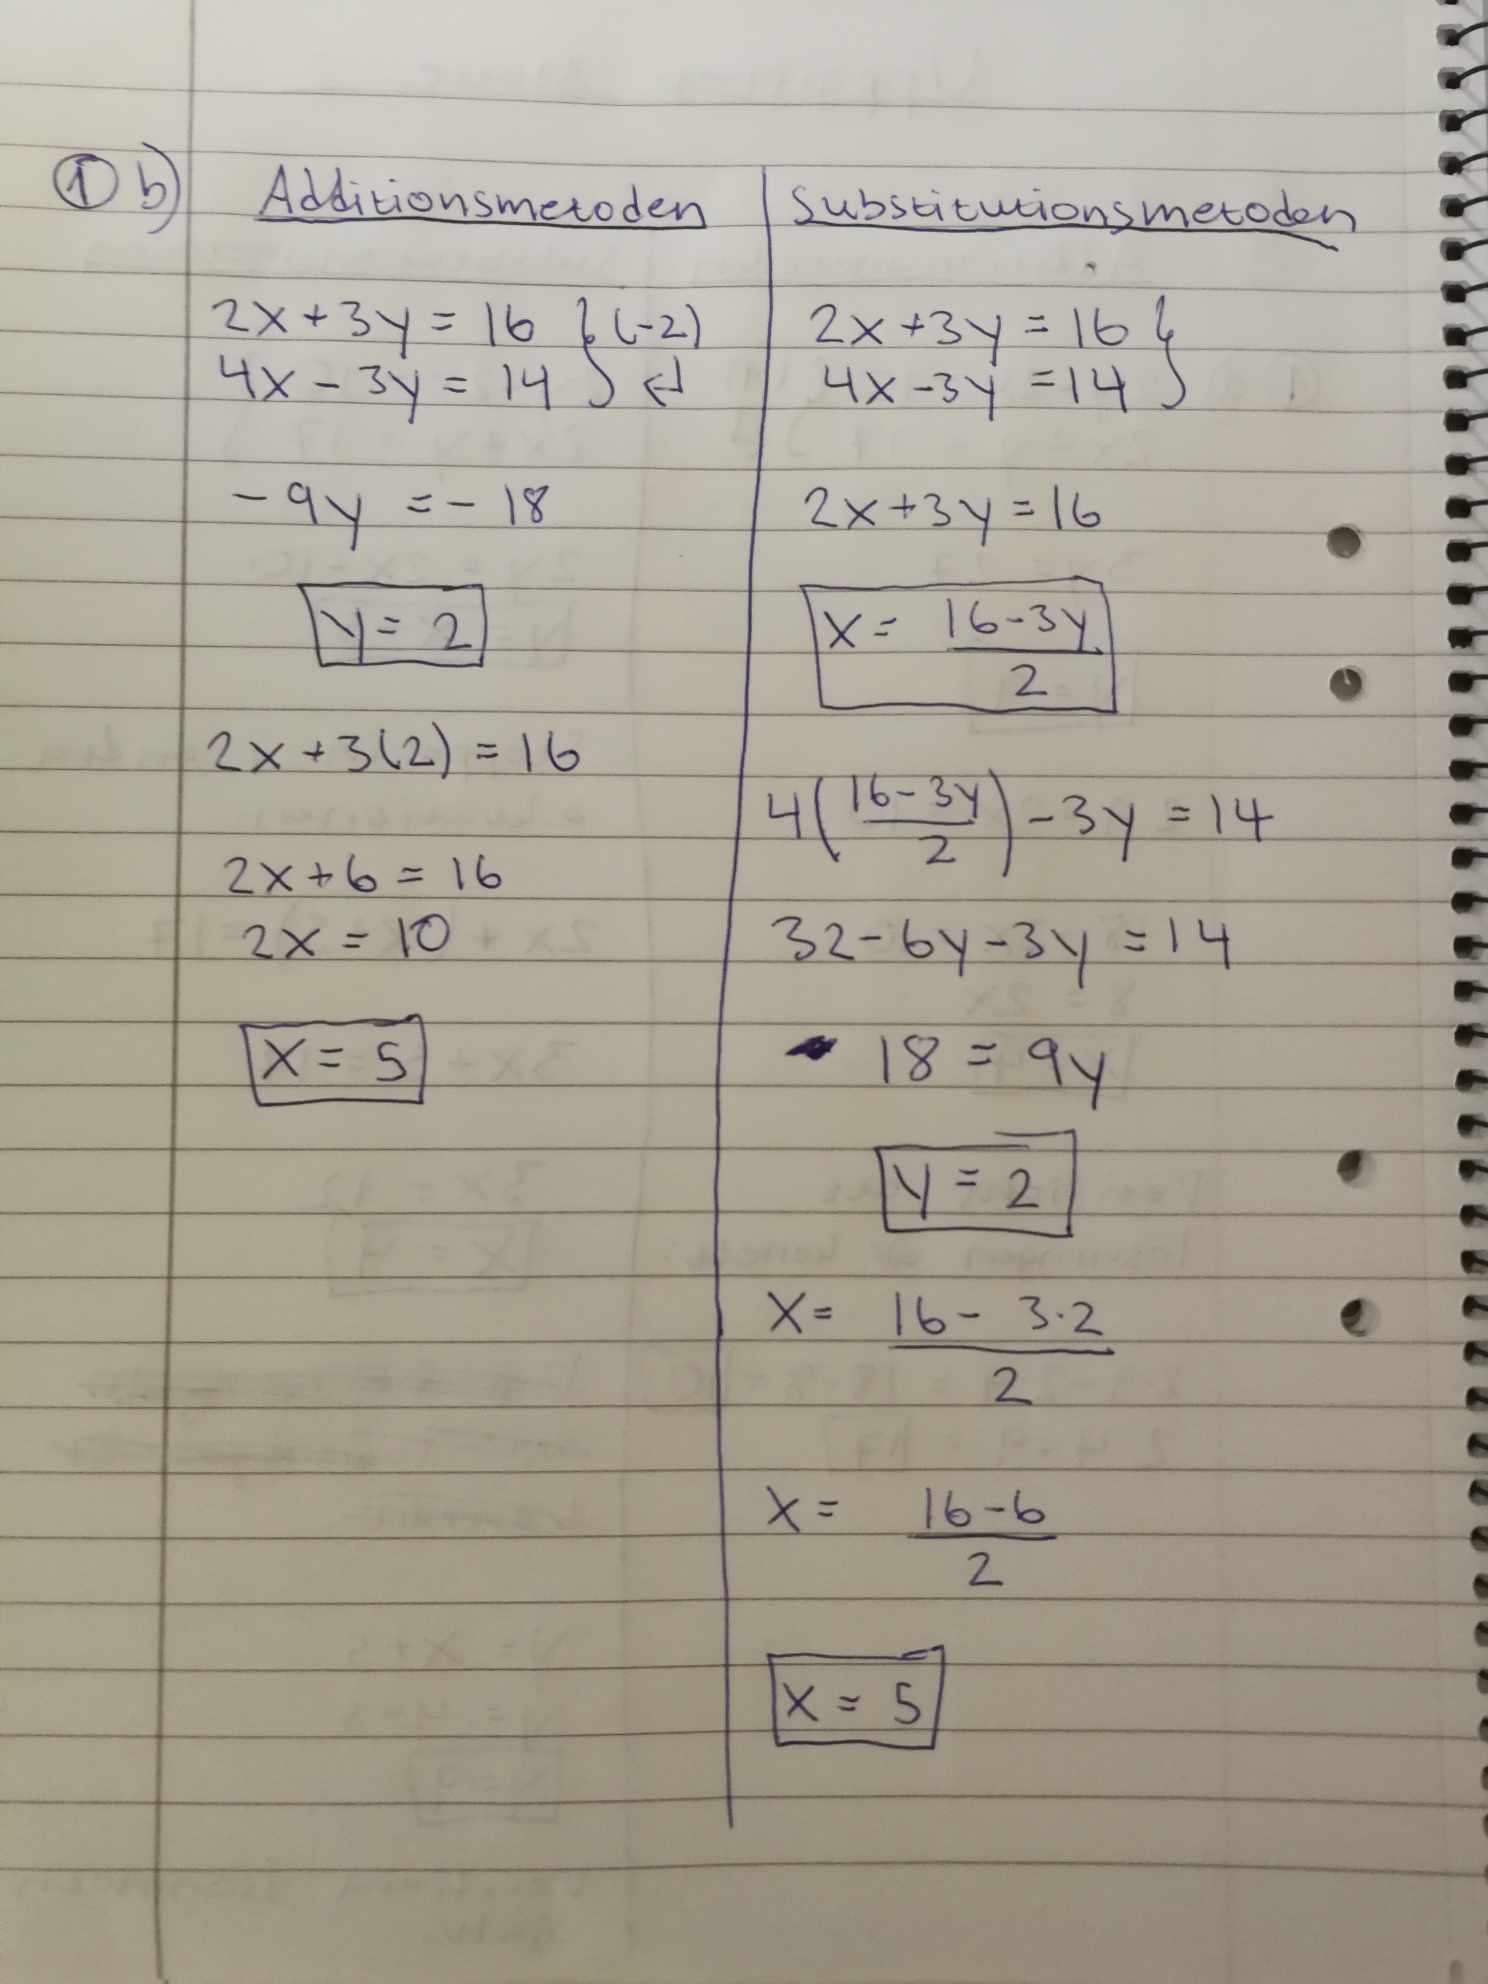 ① b)
Additionsmetoden
2x+3y = 16 } (-2)
4x - 3y = 14 } ↵
-9y = -18
y = 2
2x + 3(2) = 16
2x+6 = 16
2x = 10
x = 5
Substitutionsmetoden
2x+3y = 16 }
4x-3y = 14 }
2x+3y = 16
x = (16-3y)/2
4((16-3y)/2) - 3y = 14
32-6y-3y = 14
18 = 9y
y = 2
x = (16 - 3·2)/2
x = (16-6)/2
x = 5